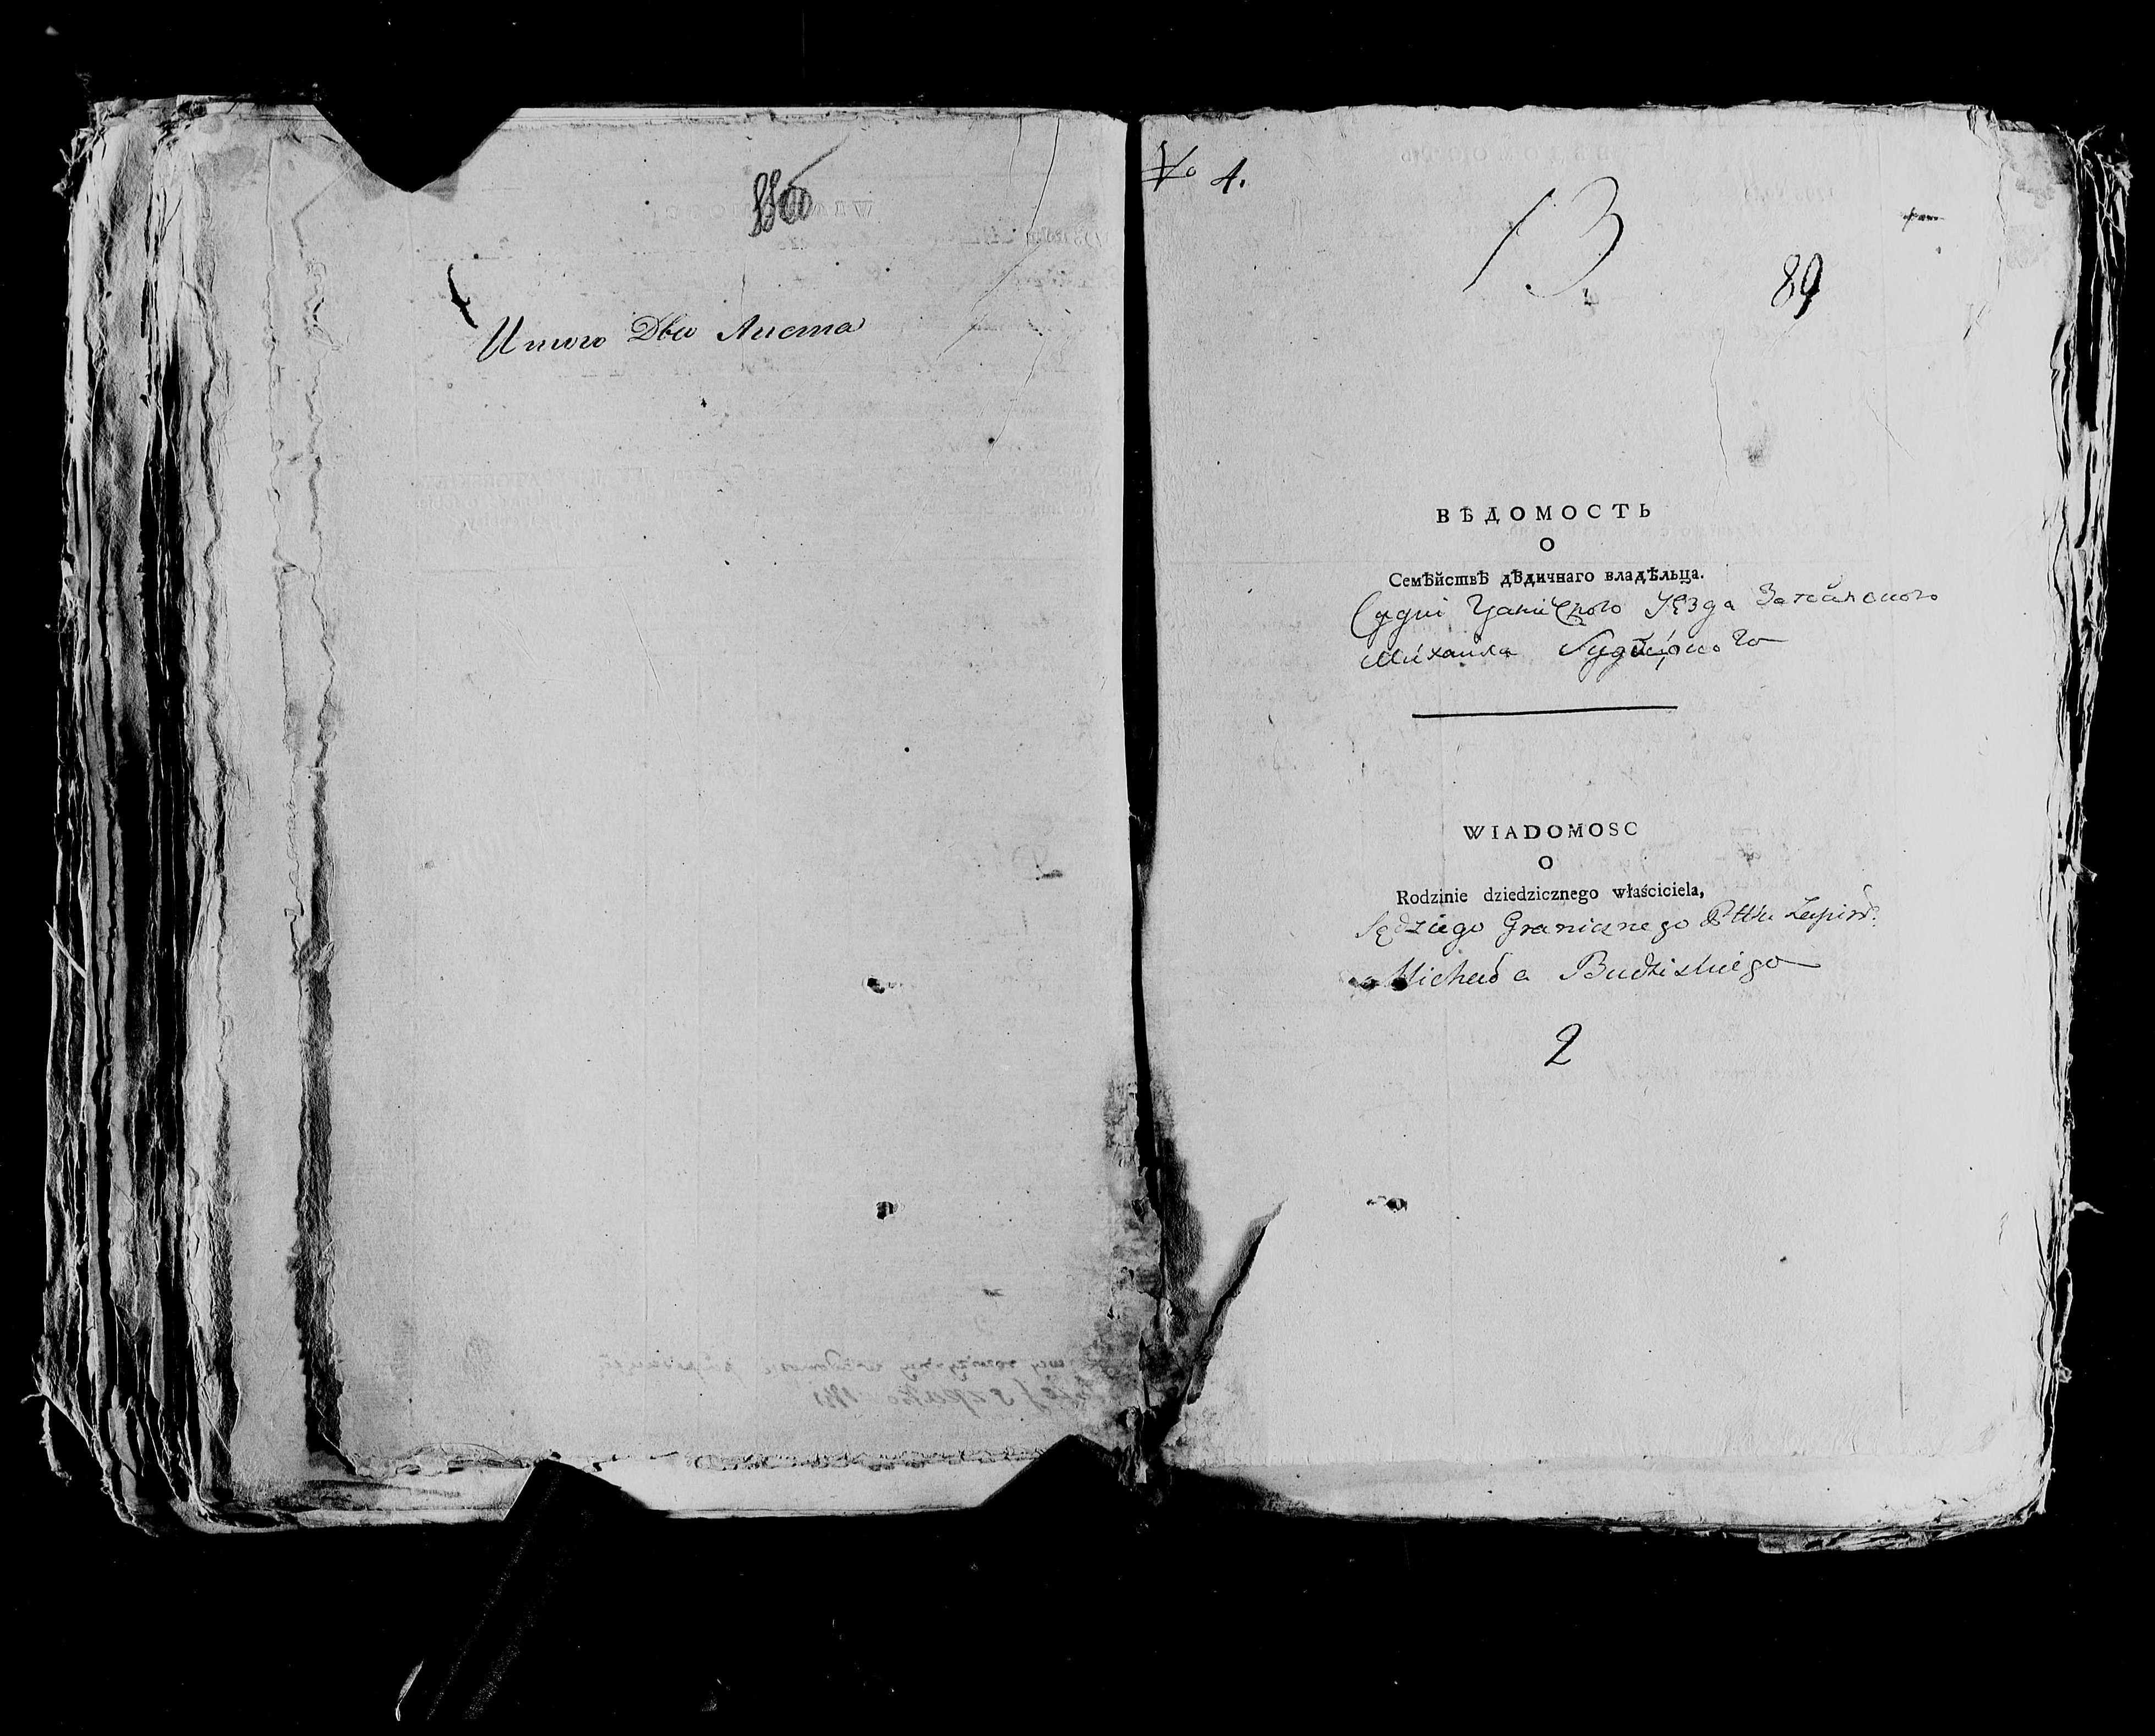 Итого Два Листа
№ 4.
13
89
ВѢДОМОСТЬ
О
Семѣйствѣ дѣдичнаго владѣльца.
Судьи Граничного Уѣзда
Михаила
WIADOMOSC
O
Rodzinie dziedzicznego właściciela,
Sędziego Granicznego Pttu
Michała Budziskiego
2